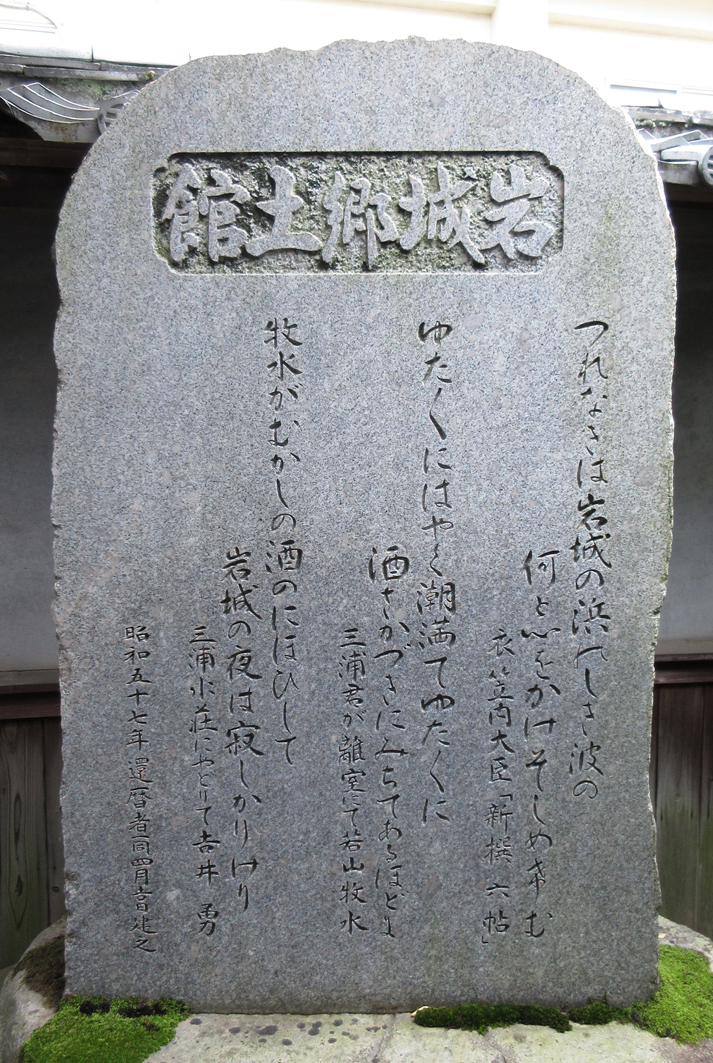 岩城郷土館
つれなさは岩城の浜のしき波の
何と心をかけそしめけむ
衣笠内大臣「新撰六帖」
ゆたくにはやく潮満てゆたくに
酒さかづきにみちてあるほどに
三浦君が離室にて若山牧水
牧水がむかしの酒のにほひして
岩城の夜は寂しかりけり
三浦水荘にやどりて吉井勇
昭和五十七年還暦者同四月吉日建之